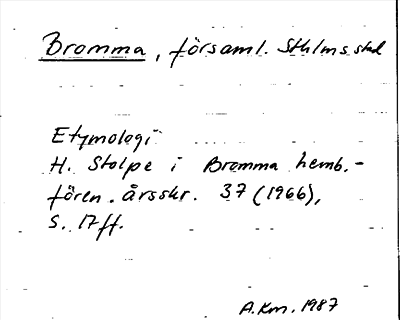 Bromma, församl. Sthlms stad
Etymologi
H. Stolpe i Bromma hemb.-
fören. årsskr. 37 (1966),
S. 17 ff.
A.Km. 1987